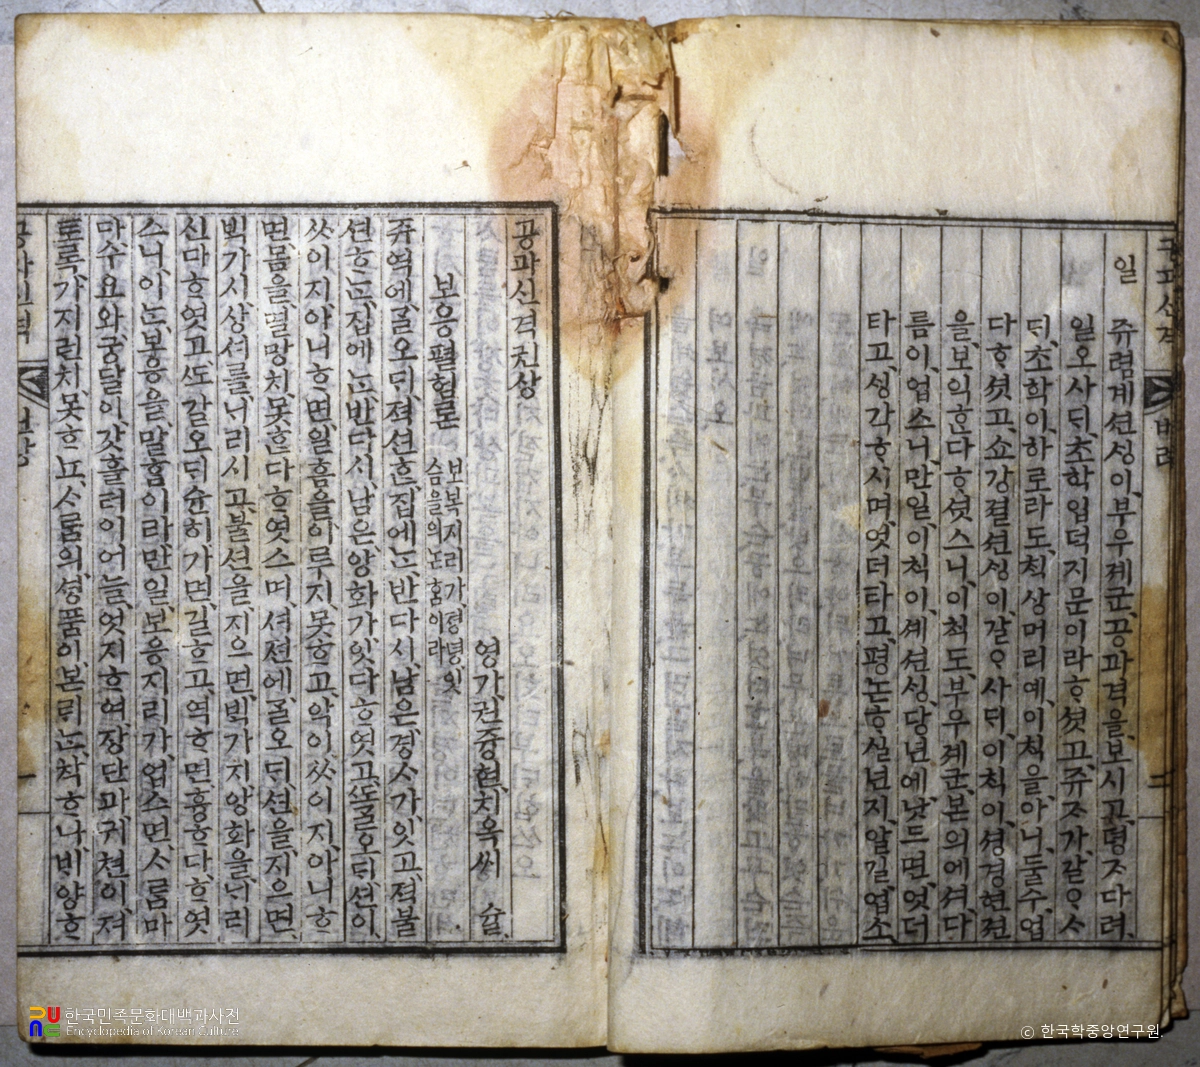 일 쥬렴계션싱이、부우졔군、공과격을、보시고、뎡ᄌᆞ다려、
일오사ᄃᆡ、초학입덕지문이라ᄒᆞ셧고、쥬ᄌᆞ가、갈ᄋᆞᄉᆞ
ᄃᆡ、초학이、하로라도、척상머리예、이척을、아니、둘수업
다ᄒᆞ셧고、쇼강졀션싱이、갈ᄋᆞ사ᄃᆡ、이척이、셩경현젼
을、보익ᄒᆞᆫ다ᄒᆞ셧스니、이척도、부우졔군、본의에셔、다
름이、업스니、만일、이척이、졔션싱、당년에、낫드면、엇더
타고、싱각ᄒᆞ시며、엇더타고、평논ᄒᆞ실넌지、알길、업소
공과신격 범례 二
공과신격권상
영가、권즁현、치옥씨 슐、
보응편험론 보복지리가、뎡녕잇
슴을의논홈이라
쥬역에、ᄀᆞᆯ오ᄃᆡ、젹션ᄒᆞᆫ집에ᄂᆞᆫ、반다시、남은경ᄉᆞ가、잇고、젹불
션ᄒᆞᄂᆞᆫ、집에ᄂᆞᆫ、반다시、남은앙화가、잇다ᄒᆞ엿고、ᄯᅩᄀᆞᆯ오ᄃᆡ、션이、
ᄡᅡ이지、아니ᄒᆞ면、일홈을、이루지、못ᄒᆞ고、악이、ᄡᅡ이지、아니ᄒᆞ
면、몸을、멸망치、못ᄒᆞᆫ다ᄒᆞ엿스며、셔젼에、ᄀᆞᆯ오ᄃᆡ、션을、지으면、
ᄇᆡᆨ가시、상셔를、ᄂᆞ리시고、불션을、지으면、ᄇᆡᆨ가지、앙화을、ᄂᆞ리
신다ᄒᆞ엿고、ᄯᅩ、갈오ᄃᆡ、슌히가면、길ᄒᆞ고、역ᄒᆞ면、흉ᄒᆞ다、ᄒᆞ엿
스니、이ᄂᆞᆫ、보응을、말ᄒᆞᆷ이라、만일、보응지리가、업스면、ᄉᆞ룸마
마、수요와、궁달이、갓흘러이어늘、엇지ᄒᆞ여、장단과、귀쳔이、져
토록、가지런치、못ᄒᆞ뇨、ᄉᆞ룸의、셩품이、본ᄅᆡᄂᆞᆫ、착ᄒᆞ나、ᄇᆡ양ᄒᆞ
공과신격 권상 一
한국민족문화대백과사전
Encyclopedia of Korean Culture
ⓒ 한국학중앙연구원.